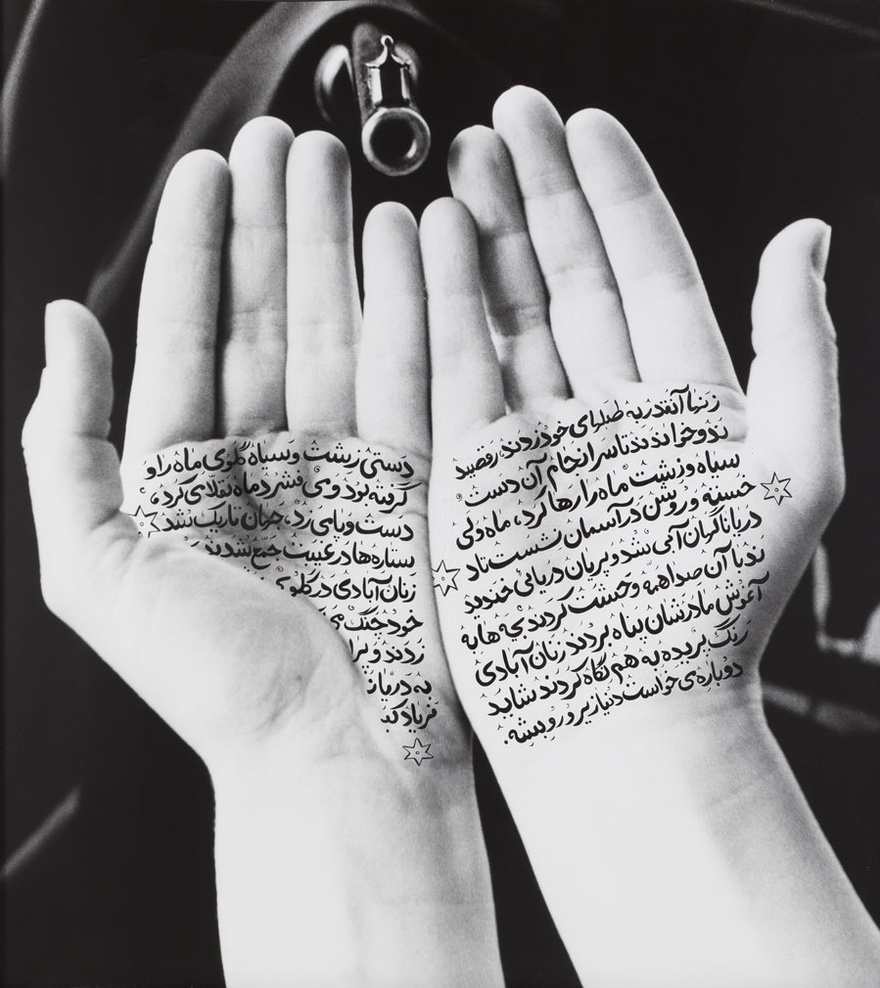 دستی زشت و سیاه گلوی ماه را و
گرفته بود و می فشرد ماه تقلا می کرد،
دست و پا می زد، جهان تاریک شد
ستاره ها در غیبت جمع شدند
زنان آبادی در گلو
خود چنگ می
زدند و
به دریا
فریاد
زنها آنقدر به طبلهای خود زدند، رقصید
ند و خواندند تا سرانجام آن دست
سیاه و زشت ماه را رها کرد، ماه ولی
خسته و روشن در آسمان نشست
دریا ناگهان آبی شد و پریان دریایی خندید
ند با آن صدا همه وحشت کردند بچه ها به
آغوش مادرشان پناه بردند زنان آبادی
رنگ پریده به هم نگاه کردند شاید
دوباره می خواست دنیا زیر و رو بشه.